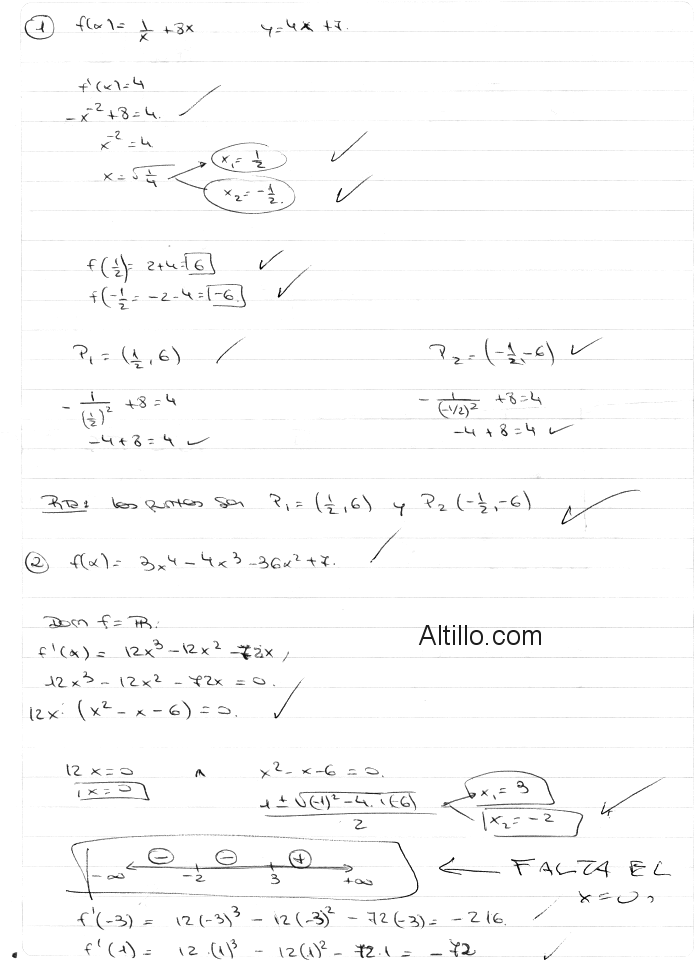 1 f(x)= 1/x +8x y=4x+7.
f'(x)=4
-x^-2+8=4.
x^-2=4
x=√1/4 x₁=1/2
x₂=-1/2.
f(1/2)= 2+4=6
f(-1/2= -2-4=-6.
P₁=(1/2,6) P₂=(-1/2,-6)
-1/(1/2)² +8=4 -1/(-1/2)² +8=4
-4+8=4 -4+8=4
Rta: los puntos son P₁=(1/2,6) y P₂(-1/2,-6)
2 f(x)= 3x⁴-4x³-36x²+7.
Dom f=ℝ.
f'(x)= 12x³-12x²-72x
12x³-12x²-72x=0.
12x·(x²-x-6)=0.
12x=0 ∧ x²-x-6=0.
x=0 1±√(-1)²-4.1(-6) / 2 x₁=3
x₂=-2
- - +
-∞ -2 3 +∞ ← FALTA EL
x=0,
f'(-3)= 12(-3)³-12(-3)²-72(-3)=-216.
f'(1)= 12.(1)³-12(1)²-72.1=-72
Altillo.com